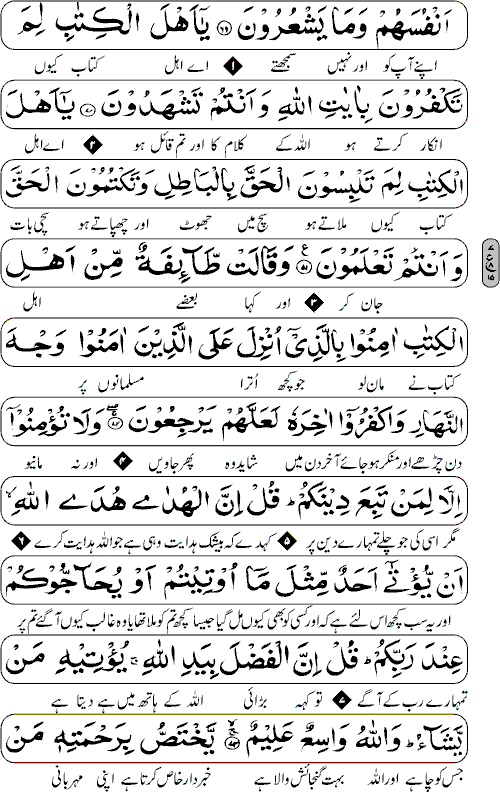 اَنْفُسَهُمْ وَمَا يَشْعُرُوْنَ ﴿۶۹﴾ يٰۤاَهْلَ الْكِتٰبِ لِمَ
اپنے آپ کو اور نہیں سمجھتے ۱ اے اہل کتاب کیوں
تَكْفُرُوْنَ بِاٰيٰتِ اللّٰهِ وَاَنْتُمْ تَشْهَدُوْنَ ﴿۷۰﴾ يٰۤاَهْلَ
انکار کرتے ہو اللہ کے کلام کا اور تم قائل ہو ۲ اے اہل
الْكِتٰبِ لِمَ تَلْبِسُوْنَ الْحَقَّ بِالْبَاطِلِ وَتَكْتُمُوْنَ الْحَقَّ
کتاب کیوں ملاتے ہو سچ میں جھوٹ اور چھپاتے ہو سچی بات
وَاَنْتُمْ تَعْلَمُوْنَ ﴿۷۱﴾ وَقَالَتْ طَّآئِفَةٌ مِّنْ اَهْلِ
جان کر ۳ اور کہا بعضے اہل
الْكِتٰبِ اٰمِنُوْا بِالَّذِيْۤ اُنْزِلَ عَلَى الَّذِيْنَ اٰمَنُوْا وَجْهَ
کتاب نے مان لو جو کچھ اُترا مسلمانوں پر
النَّهَارِ وَاكْفُرُوْۤا اٰخِرَهٗ لَعَلَّهُمْ يَرْجِعُوْنَ ﴿۷۲﴾ وَلَا تُؤْمِنُوْۤا
دن چڑھے اور منکر ہو جائے آخر دن میں شاید وہ پھر جاویں ۴ اور نہ مانیو
اِلَّا لِمَنْ تَبِعَ دِيْنَكُمْ ؕ قُلْ اِنَّ الْهُدٰى هُدَى اللّٰهِ ۙ
مگر اسی کی جو چلے تمہارے دین پر ۵ کہدے کہ بیشک ہدایت وہی ہے جو اللہ ہدایت کرے ۶
اَنْ يُّؤْتٰۤى اَحَدٌ مِّثْلَ مَاۤ اُوْتِيْتُمْ اَوْ يُحَآجُّوْكُمْ
اور یہ سب کچھ اس لئے ہے کہ اور کسی کو بھی کیوں مل گیا جیسا کچھ تم کو ملا تھا یا وہ غالب کیوں آ گئے تم پر
عِنْدَ رَبِّكُمْ ؕ قُلْ اِنَّ الْفَضْلَ بِيَدِ اللّٰهِ ۚ يُؤْتِيْهِ مَنْ
تمہارے رب کے آگے ۷ تو کہہ بڑائی اللہ کے ہاتھ میں ہے دیتا ہے
يَّشَآءُ ؕ وَاللّٰهُ وَاسِعٌ عَلِيْمٌ ﴿۷۳﴾ يَّخْتَصُّ بِرَحْمَتِهٖ مَنْ
جس کو چاہے اور اللہ بہت گنجائش والا ہے خبردار خاص کرتا ہے اپنی مہربانی